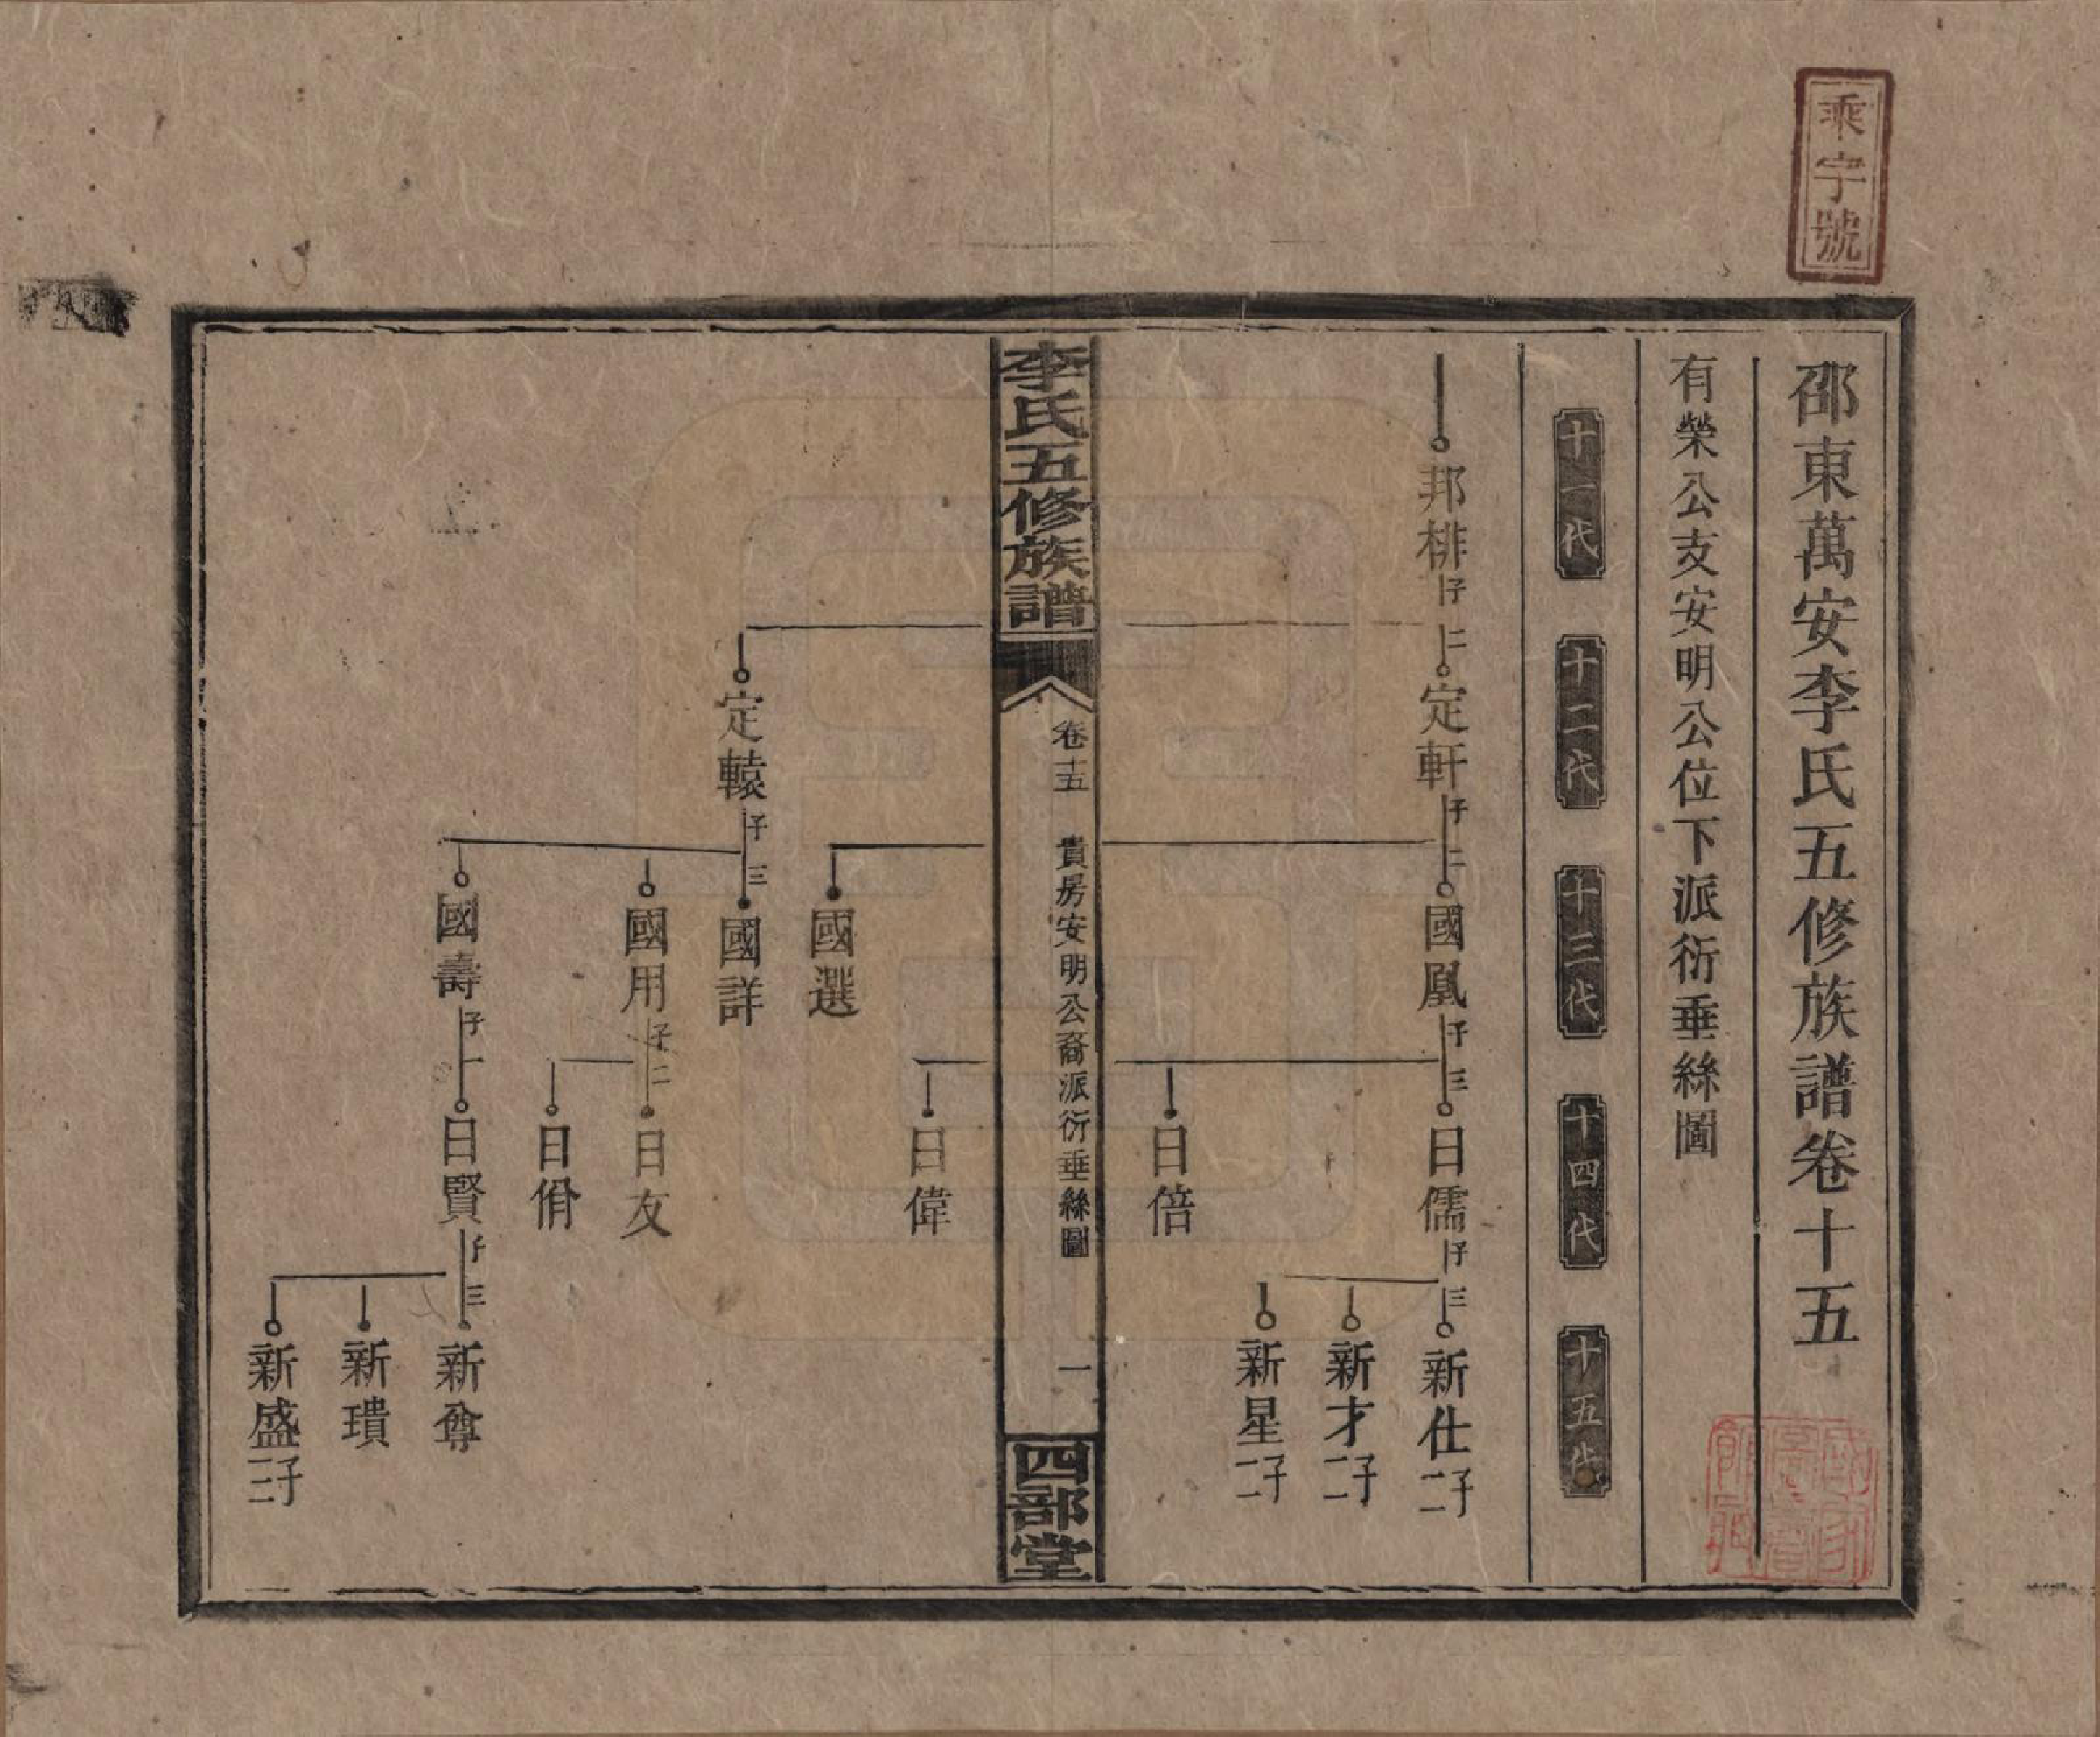 乘字號
邵東萬安李氏五修族譜卷十五
有榮公支安明公位下派衍垂絲圖
十一代
十二代
十三代
十四代
十五代
邦棑子二
定軒子二
國凰子三
日儒子三
新仕子二
新才子二
新星子二
日倍
李氏五修族譜
卷十五
貴房安明公裔派衍垂絲圖
一
四部堂
日偉
國選
定轅子三
國詳
國用子二
日友
日佾
國壽子一
日賢子三
新尊
新璝
新盛子二